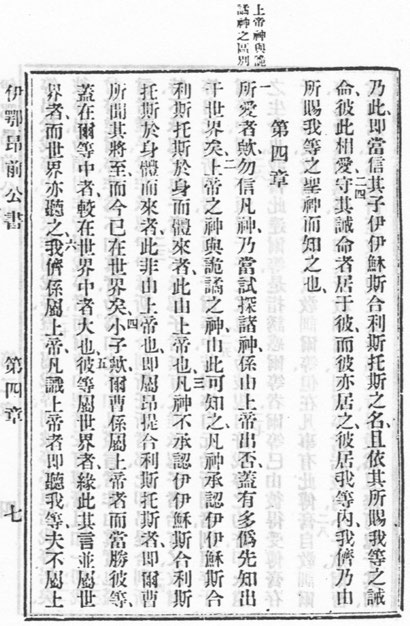 上帝神與詭
譎神之區別
乃此、即當信其子伊伊穌斯合利斯托斯之名、且依其所賜我等之誡
命、彼此相愛、二四守其誡命者、居于彼、而彼亦居之、彼居我等內、我儕乃由
所賜我等之聖神而知之也、
第四章
一所愛者歟、勿信凡神、乃當試探諸神、係由上帝出否、蓋有多僞先知出
于世界矣、二上帝之神與詭譎之神、由此可知之、凡神承認伊伊穌斯合
利斯托斯於身而體來者、此由上帝也、三凡神不承認伊伊穌斯合利斯
托斯於身體而來者、此非由上帝也、即屬昂提合利斯托斯者、即爾曹
所聞其將至、而今已在世界矣、四小子歟、爾曹係屬上帝者、而當勝彼等、
蓋在爾等中者、較在世界中者大也、五彼等屬世界者、緣此其言並屬世
界者、而世界亦聽之、六我儕係屬上帝、凡識上帝者、即聽我等、夫不屬上
伊鄂昂前公書
第四章
七